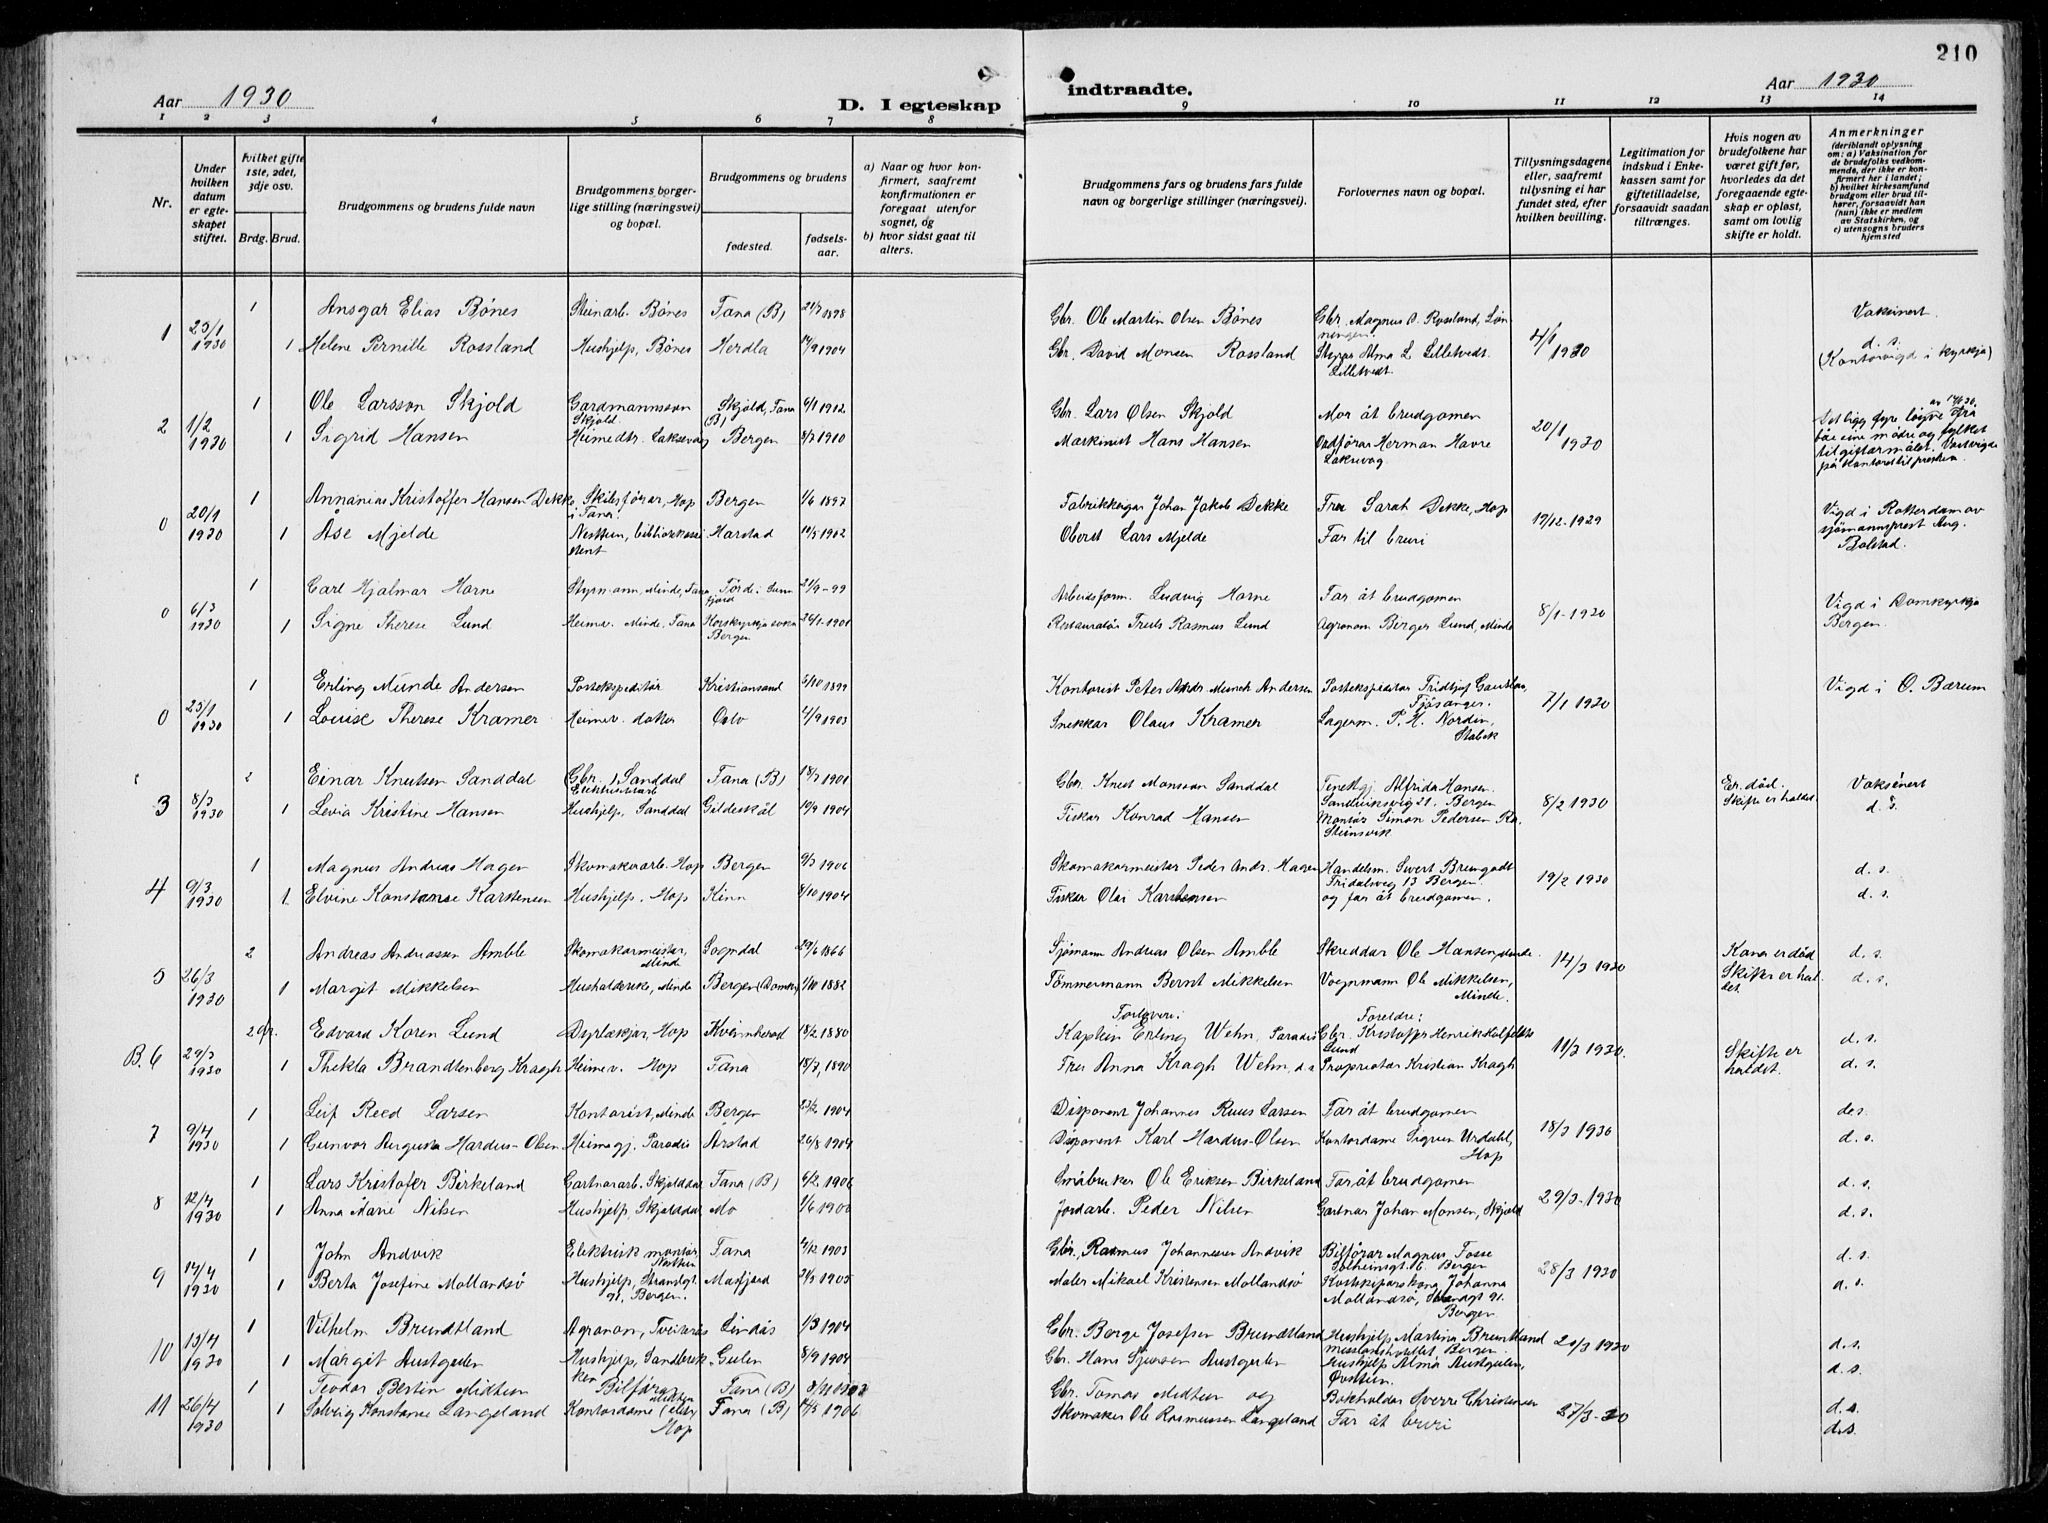 210
Aar 1930
D. I egteskap
indtraadte.
Aar 1930
1 2 3 4 5 6 7 8 9 10 11 12 13 14
Nr.
Under hvilken datum er egteskapet stiftet.
hvilket gifte 1ste, 2det, 3dje osv.
Brdg. Brud.
Brudgommens og brudens fulde navn
Brudgommens borgerlige stilling (næringsvei) og bopæl.
Brudgommens og brudens
fødested.
fødselsaar.
a) Naar og hvor konfirmert, saafremt konfirmationen er foregaat utenfor sognet, og
b) hvor sidst gaat til alters.
Brudgommens fars og brudens fars fulde navn og borgerlige stillinger (næringsvei).
Forlovernes navn og bopæl.
Tillysningsdagene eller, saafremt tillysning ei har fundet sted, efter hvilken bevilling.
Legitimation for indskud i Enkekassen samt for giftetilladelse, forsaavidt saadan tiltrænges.
Hvis nogen av brudefolkene har været gift før, hvorledes da det foregaaende egteskap er opløst, samt om lovlig skifte er holdt.
Anmerkninger
(deriblandt oplysning om: a) Vaksination for de brudefolks vedkommende, der ikke er konfirmert her i landet; b) hvilket kirkesamfund brudgom eller brud tilhører, forsaavidt han (hun) ikke er medlem av Statskirken, og c) utensogns bruders hjemsted
1 23/1 1930
1 Ansgar Elias Bönes Steinarb. Bönes Fana (B) 21/7 1898 Gbr. Ole Martin Olsen Bönes Gbr. Magnus O. Rossland, Lönningen. 4/1 1930 Vaksinert.
1 Helene Pernille Rossland Hushjelp, Bönes Herdla 14/9 1904 Gbr. David Monsen Rossland Styrar Alma L. Lilletvedt. Lilletvedt. d. s. (Kontorvigd i kyrkja)
2 1/2 1930
1 Ole Larsson Skjold Gardmannsson Skjold. Skjold, Fana (B) 6/1 1912 Gbr. Lars Olsen Skjold Mor åt brudgomen 20/1 1930
1 Sigrid Hansen Heimedtr. Laksevåg Bergen 8/7 1910 Maskinist Hans Hansen Vodförar Herman Havre Laksevåg
Det ligg fyre löyve frå
til giftarmålet.
på kontoret til presten.
0 20/1 1930
1 Annanias Kristoffer Hansen Dekke Skibsförar, Hop i Fana. Bergen 1/6 1897 Fabrikkeigar Johan Jakob Dekke Fru Sarah Dekke, Hop 19/12-1929 Vigd i Rotterdam av sjömannsprest Aug. Bolstad.
1 Åse Mjelde Nesttun, bibliotekassistent Harstad 1902 Oberst Lars Mjelde Far til bruri
0 6/3 1930
1 Carl Hjalmar Horne Styrmann, Minde, Fana Förde i Sunnfjord 21/9-99 Arbeidsform. Ludvig Horne Far åt brudgomen 8/1-1930 Vigd i Domkyrkja Bergen.
1 Signe Therese Lund Heimev. Minde, Fana Korskyrkja sokn Bergen 26/1-1901 Restauratör Truls Rasmus Lund Agronom Berger Lund, Minde
0 23/1 1930
1 Erling Munde Andersen Postekspeditör Kristiansand 5/10 1899 Kontorist Peter Andr. Munch Andersen Postekspeditör Fridtjof Gaustdan, Fjösanger. 7/1 1930 Vigd i Ö. Bærum
1 Louise Therese Kramer Heimev. Oslo 4/9 1903 Snekkar Olaus Kramer Lagerm. P. H. Nordin, Stabek
3 8/3 1930
2 Einar Knutsen Sanddal Gbr., Sanddal Elektrisitetsarb Fana (B) 18/7 1901 Gbr. Knut Monsson Sanddal Tenestgj. Alfrida Hansen. Sandviksveg 21. Bergen 8/2 1930 Er. död. Skifte er haldet. Vaksinert
1 Levia Kristine Hansen Hushjelp, Sanddal Gildeskål 19/9 1904 Fiskar Konrad Hansen Montör Simon Pedersen Ra, Steinsvik d. s.
4 9/3 1930
1 Magnus Andreas Hagen Skomakararb. Hop Bergen 9/3 1906 Skomakarmeister Peder Andr. Hagen Handelsm. Sivert Breingodt Fridalsveg 13 Bergen. 19/2 1930 d. s.
1. Elvine Konstanse Karstensen Hushjelp. Hop Kinn 8/10 1904 Fiskar Olai Karstensen og far åt brudgomen. d. s.
5 26/3 1930
2 Andreas Andreassen Amble Skomakarmeister, Minde Sogndal 29/6 1866 Sjömann Andreas Olsen Amble Skreddar Ole Hansen, Minde. 14/3 1930 Kona er död d. s.
1 Margit Mikkelsen Husholderske, Minde Bergen (Domk.) 1/10 1882 Tömmermann Bernt Mikkelsen Vognmann Ole Mikkelsen, Minde. Skifte er haldet. d. s.
B. 6 29/3 1930
Forlovere: Foreldre:
2 Edvard Koren Lund Dyrlækjar, Hop Kvinnherad 18/2 1880 Kaptein Erling Wehn, Paradis Gbr. Kristoffer Henrik Lund 11/3 1930. d. s.
1 Thekla Brandtenberg Kragh Heimev. Hop Fana 18/7, 1890 Fru Anna Kragh Wehn, d. s Proprietær Kristian Kragh Skifte er haldet. d. s.
7 9/4 1930
1 Leif Reed Larsen Kontorist, Minde Bergen 23/2 1904 Disponent Johannes Ruus Larsen Far åt brudgomen 18/3 1930 d. s.
1 Gunvor Augusta Hardus-Olsen Heimagj. Paradis Årstad 26/8 1904 Disponent Karl Hardus-Olsen Kontordame Sigrun Urdahl, Hop d. s.
8 12/4 1930
1 Lars Kristofer Birkeland Gartnararb. Skjolddal Fana (B) 6/2 1906 Småbruker Ole Eriksen Birkeland Far åt brudgomen 29/3-1930 d. s.
1 Anna Marie Nilsen Hushjelp, Skjolddal Mo 1/6 1900 Jordarb. Peder Nilsen Gartnar Johan Monsen, Skjold d. s.
9 14/4 1930
1 John Andvik Elektrisk montör, Nesttun Fana 4/12 1903 Gbr. Rasmus Johannessen Andvik Bilförar Magnus Fosse Solheimsgt. 16. Bergen 28/3 1930 d. s.
1 Berta Josefine Mollandsö Hushjelp, Strandgt 91. Bergen. Masfjord 21/5 1905 Maler Mikael Kristensen Mollandsö Kostskiparkona Johanna Mollandsö, Strandgt 91. Bergen d. s.
10 13/4 1930
1 Vilhelm Brundtland Agronom, Tveiterås Lindås 1/3 1904 Gbr. Berge Josefsen Brundtland Hushjelp Martina Brundtland misjonshotellet Bergen. 21/3 1930 d. s.
1 Margit Austgulen Hushjelp, Sandbrekken Gulen 8/9 1904 Gbr. Hans Sjursen Austgulen Hushjelp Alma Austgulen, Övstun. d. s.
11 26/4 1930
1 Teodor Bertin Midtun Bilförar Midtun Fana (B) Gbr. Tomas Midtun og Bokholder Sverre Christensen 27/3-30 d. s.
1 Solveig Konstanse Langeland Kontordame Hop Fana (B) 14/5 1906 Skomaker Ole Rasmussen Langeland Far åt bruri d. s.